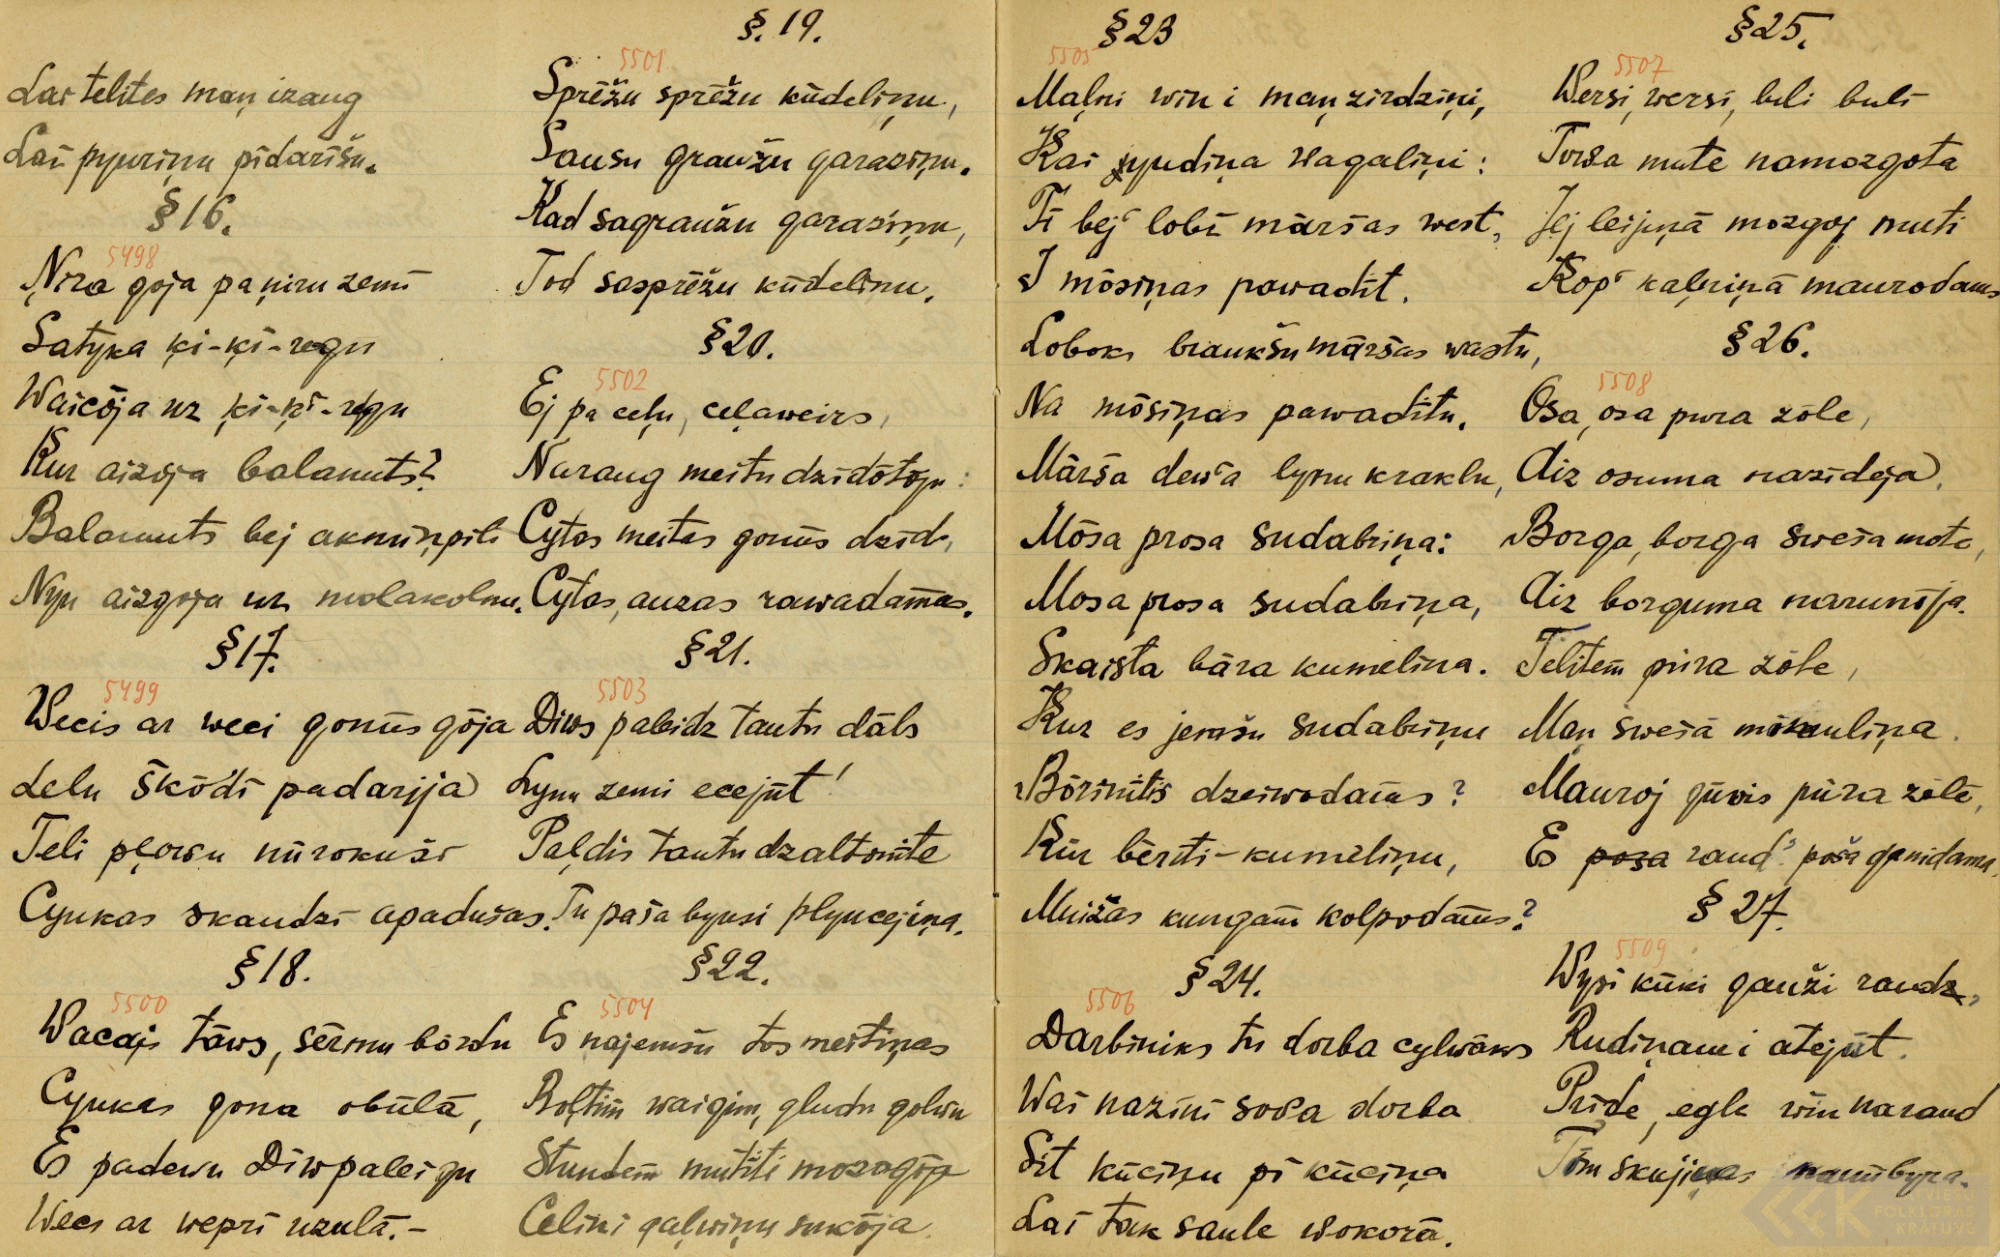 Lai telites maņ izaug
Lai pyuriņu pīdarīšu.
§ 16.
5498
Ņira goja pa ņiru zemi
Satyka ķi-ķi-regu
Waicōja uz ķi-ķi-regu
Kur aizgoja balamuts?
Balamuts bej akmiņpilī
Nyu aizgoja uz molakolnu.
§ 17.
5499
Wecis ar weci gonūs gōja
Lelu škōdi padarija
Teli pļowu nūrokuši
Cyukas skaudzi apadušas.
§ 18.
5500
Wacajs tāws, sērmu bōrdu
Cyukas gona obūlā,
Es padewu Diwpaleigu
Wecs ar wepri uzulā.-
§. 19.
5501
Sprēžu sprēžu kūdeliņu,
Sausu graužu garaziņu.
Kad sagraužu garaziņu,
Tod sasprēžu kūdelinu.
§ 20.
5502
Ej pa ceļu, ceļaweirs,
Naraug meitu dzīdōtōju:
Cytas meitas gonūs dzīd,
Cytas, auzas rawadamas.
§ 21.
5503
Diws paleidz tautu dāls
Lynu zemi ecejūt!
Paļdis tautu dzaltonite
Tu paša byusi plyucejiņa.
§ 22.
5504
Es najemšu tos meitiņas
Boltim waigim, gludu golwu
Stundem mutiti mozagōja
Celiņi galwiņu sukōja.
§ 23
5505
Maļni win i maņ zirdziņi,
Kai yudiņa wagaliņi:
Ti bej lobi māršas west,
I mōsiņas pawadit.
Loboks braukšu māršas wastu,
Na mōsiņas pawaditu.
Mārša dewa lynu kraklu,
Mōsa prosa sudabriņa:
Mosa prosa sudabriņa,
Skaista bāra kumeliņa.
Kur es jemšu sudabriņu
Bōrinitis dzeiwodams?
Kur bērti-kumeliņu,
Muižas kungam kolpodams?
§ 24.
5506
Darbiniks tu dorba cylwāks
Wai nazini sowa dorba
Sit kūciņu pi kūciņa
Lai tak saule wokorā.
§ 25.
5507
Wersi, wersi, buli buli
Towa mute namozgota
Jej leijeņā mozgoj muti
Kop kaļniņā maurodams
§ 26.
5508
Osa, osa pura zōle,
Aiz osuma nazideja.
Borga, borga sweša mote,
Aiz borguma narunōja.
Telitem pura zōle,
Maņ swešā mōmuliņa.
Mauroj gūwis pūra zōlē,
Es posa raud poša gonidama.
§ 27.
5509
Wysi kūki gauži raudz,
Rudiņam i atejūt.
Prīde, egle win naraud
Tom skujiņas nanūbyra.